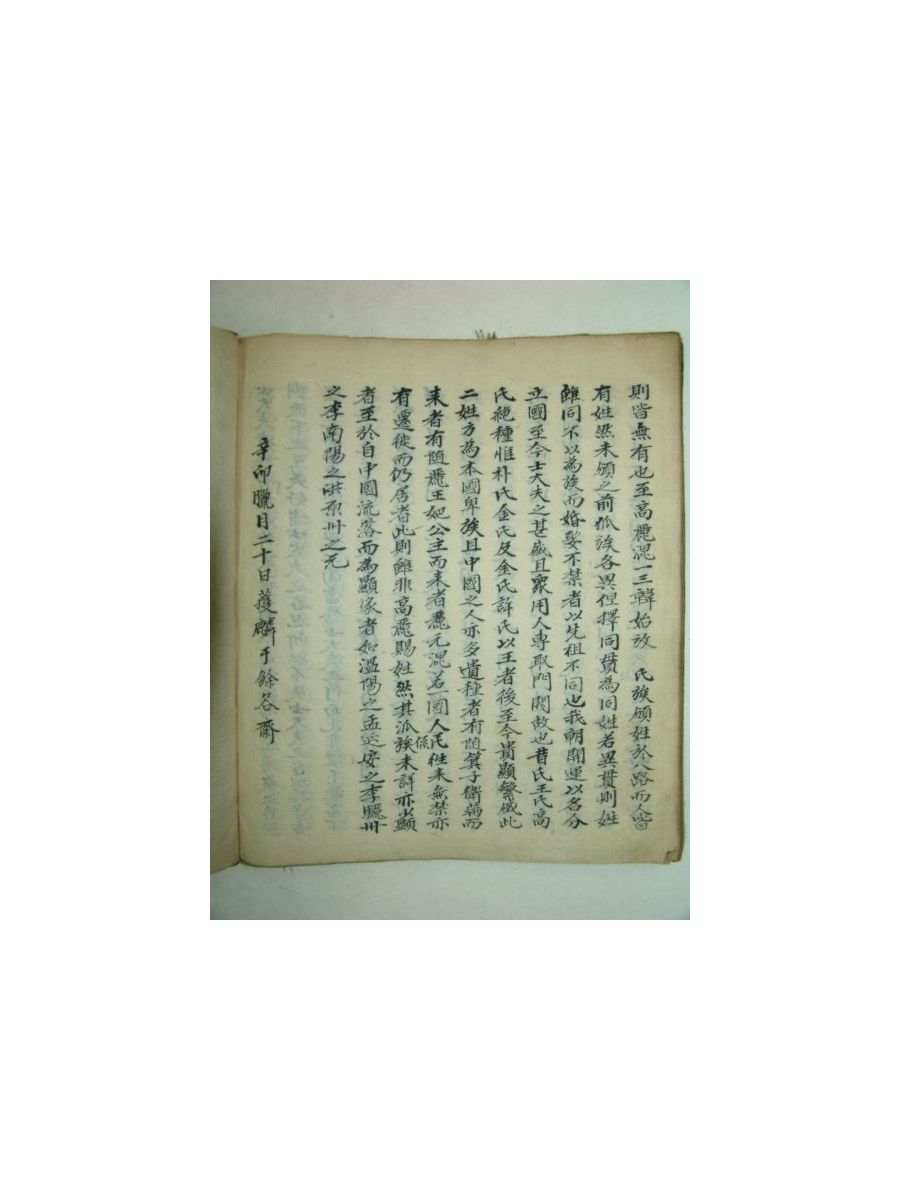 則皆無有也至高麗混一三韓始放 氏族頒姓於八路而人皆
有姓然未頒之前派族各異但擇同貫為同姓若異貫則姓
雖同不以為族而婚娶不禁者以先祖不同也我朝開運以名分
立國至今士大夫之甚盛且衆用人專取門閥故也昔氏王氏高
氏絶種惟朴氏金氏及金氏許氏以王者後至今貴顯繁盛此
二姓方為本國卑族且中國之人亦多遺種者有随箕子衛滿而
来者有随麗王妃公主而来者麗元混若一國人民往来無禁亦
有遷徙而仍居者此則雖非高麗賜姓然其派族係未詳亦少顯
者至於自中國流落而為顯家者如溫陽之孟延安之李驪州
之李南陽之洪原州之元
辛卯臘月二十日獲麟于餘各齋